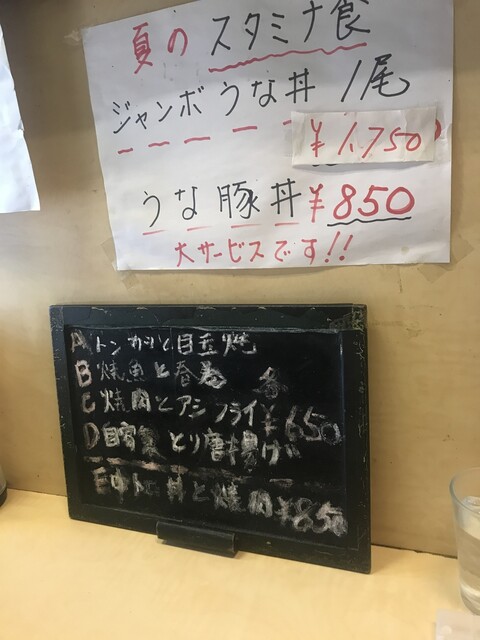 夏のスタミナ食
ジャンボうな丼 1尾
¥1,750
うな豚丼 ¥850
大サービスです!!
A トンカツと目玉焼
B 焼魚と春巻 各
C 焼肉とアジフライ ¥650
D 自家製とり唐揚げ
E 中トロ丼と焼肉 ¥850